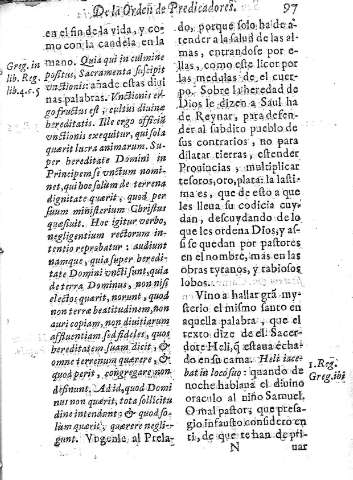 De la Orden de Predicadores. 97
en el fin de la vida, y co-
mo con la candela en la
mano. Quia qui in culmine
positus, Sacramenta suscipit
vnctionis: añade estas diui
nas palabras. Vnctionis er-
go fructus est; cultus diuinæ
hereditatis. Ille ergo officiũ
vnctionis exequitur, qui sola
quærit lucra animarum. Su-
per hereditate Domini in
Principem se vnctum nomi-
net, qui hoc solum de terrena
dignitate quærit, quod per
suum ministerium Christus
quæsiuit. Hoc igitur verbo,
negligentium rectorum in-
tentio reprobatur: audiunt
namque, quia super heredita-
te Domini vncti sunt, quia
de terra Dominus, non nisi
electos quærit, norunt, quod
non terra beatitudinem, non
auri copiam, non diuitiarum
affluentiam sed fideles, quos
hereditatem suam dicit, &
omne terrenum quærere, &
quod perit, congregare non
definunt. Ad id, quod Domi
nus non quærit, tota sollicitu
dine intendant; & quod so-
lum quærit, quærere negli-
gunt. Vngenle al Prela-
Greg. in
lib. Reg.
lib. 4. c. 5
do, porque solo ha de a-
tender a la salud de las al-
mas, entrandose por e-
llas, como este licor por
las medulas de el cuer-
po. Sobre la heredad de
Dios le dizen a Saul ha
de Reynar, para defen-
der al subdito pueblo de
sus contrarios, no para
dilatar tierras, estender
Prouincias, multiplicar
tesoros, oro, plata: la lasti-
ma es, que de esto a que
les lleua su codicia cuy
dan, descuydando de lo
que les ordena Dios, y as-
si se quedan por pastores
en el nombre, mas en las
obras tyranos, y rabiosos
lobos.
Vino a hallar grã my-
sterio el mismo santo en
aquella palabra, que el
texto dize de el Sacer-
dote Heli, q̃ estaua echa-
do en su cama. Heli iace-
bat in loco suo: quando de
noche hablaua el diuino
oraculo al niño Samuel.
O mal pastor; que presa-
gio infausto considero en
ti, de que te han de pri-
1. Reg.
Greg. ibi
N uar